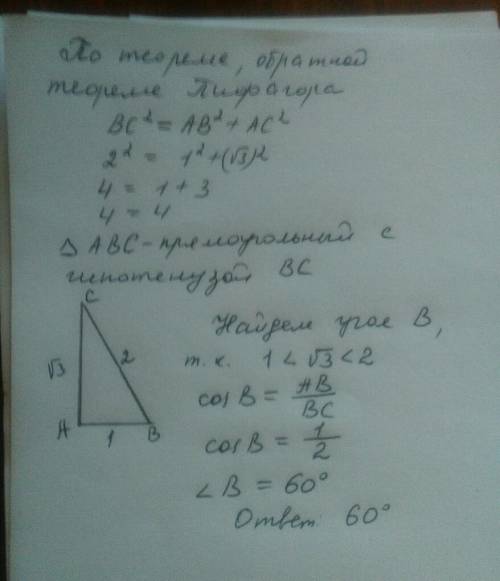 По теореме, обратной
теореме Пифагора
BC² = AB² + AC²
2² = 1² + (√3)²
4 = 1 + 3
4 = 4
△ ABC - прямоугольный с
гипотенузой BC
C
√3
2
A
1
B
Найдем угол B,
т.к. 1 < √3 < 2
cos B = AB/BC
cos B = 1/2
∠B = 60°
Ответ: 60°